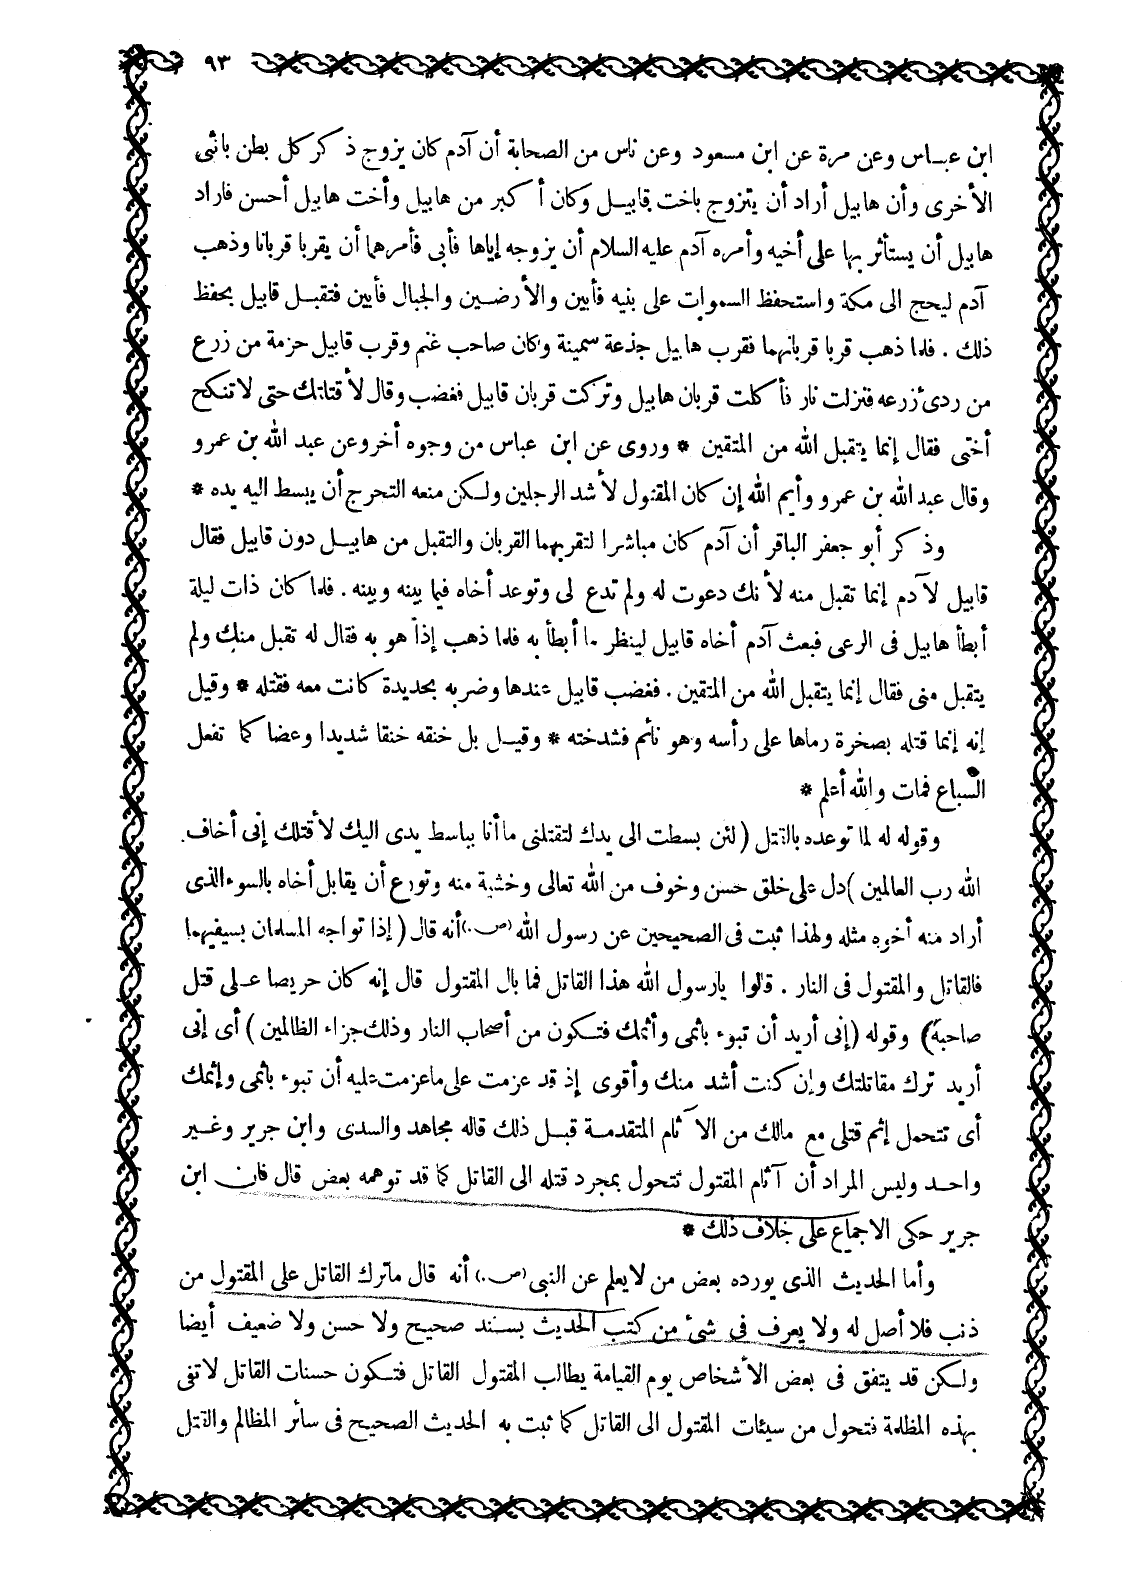 ٩٣
ابن عباس وعن مرة عن ابن مسعود وعن ناس من الصحابة أن آدم كان يزوج ذكر كل بطن بانثى
الأخرى وأن هابيل أراد أن يتزوج باخت قابيل وكان أكبر من هابيل وأخت هابيل أحسن فاراد
هابيل أن يستأثر بها على أخيه وأمره آدم عليه السلام أن يزوجه إياها فأبى فأمرهما أن يقربا قربانا وذهب
آدم ليحج الى مكة واستحفظ السموات على بنيه فأبين والأرضين والجبال فأبين فتقبل قابيل بحفظ
ذلك . فلما ذهب قربا قربانهما فقرب هابيل جذعة سمينة وكان صاحب غنم وقرب قابيل حزمة من زرع
من ردىء زرعه فنزلت نار فأكلت قربان هابيل وتركت قربان قابيل فغضب وقال لأقتلنك حتى لا تنكح
أختى فقال إنما يتقبل الله من المتقين * وروى عن ابن عباس من وجوه أخر وعن عبد الله بن عمرو
وقال عبد الله بن عمرو وأيم الله إن كان المقتول لأشد الرجلين ولكن منعه التحرج أن يبسط اليه يده *
وذكر أبو جعفر الباقر أن آدم كان مباشرا لتقربهما القربان والتقبل من هابيل دون قابيل فقال
قابيل لآدم إنما تقبل منه لأنك دعوت له ولم تدع لى وتوعد أخاه فيما بينه وبينه . فلما كان ذات ليلة
أبطأ هابيل فى الرعى فبعث آدم أخاه قابيل لينظر ما أبطأ به فلما ذهب إذا هو به فقال له تقبل منك ولم
يتقبل منى فقال إنما يتقبل الله من المتقين . فغضب قابيل عندها وضربه بحديدة كانت معه فقتله * وقيل
إنه إنما قتله بصخرة رماها على رأسه وهو نائم فشدخته * وقيل بل خنقه خنقا شديدا وعضا كما تفعل
السباع فمات والله أعلم *
وقوله له لما توعده بالقتل ( لئن بسطت الى يدك لتقتلنى ما أنا بباسط يدى اليك لأقتلك إنى أخاف
الله رب العالمين ) دل على خلق حسن وخوف من الله تعالى وخشية منه وتورع أن يقابل أخاه بالسوء الذى
أراد منه أخوه مثله ولهذا ثبت فى الصحيحين عن رسول الله (ص.) أنه قال ( إذا تواجه المسلمان بسيفيهما
فالقاتل والمقتول فى النار . قالوا يارسول الله هذا القاتل فما بال المقتول قال إنه كان حريصا على قتل
صاحبه ) وقوله ( إنى أريد أن تبوء بأثمى وأثمك فتكون من أصحاب النار وذلك جزاء الظالمين ) أى إنى
أريد ترك مقاتلتك وإن كنت أشد منك وأقوى إذ قد عزمت على ما عزمت عليه أن تبوء بأثمى وإثمك
أى تتحمل إثم قتلى مع مالك من الآثام المتقدمة قبل ذلك قاله مجاهد والسدى وابن جرير وغير
واحد وليس المراد أن آثام المقتول تتحول بمجرد قتله الى القاتل كما قد توهمه بعض قال فان ابن
جرير حكى الاجماع على خلاف ذلك *
وأما الحديث الذى يورده بعض من لا يعلم عن النبى (ص.) أنه قال ماترك القاتل على المقتول من
ذنب فلا أصل له ولا يعرف فى شئ من كتب الحديث بسند صحيح ولا حسن ولا ضعيف أيضا
ولكن قد يتفق فى بعض الأشخاص يوم القيامة يطالب المقتول القاتل فتكون حسنات القاتل لا تفى
بهذه المظلمة فتحول من سيئات المقتول الى القاتل كما ثبت به الحديث الصحيح فى سائر المظالم والقتل